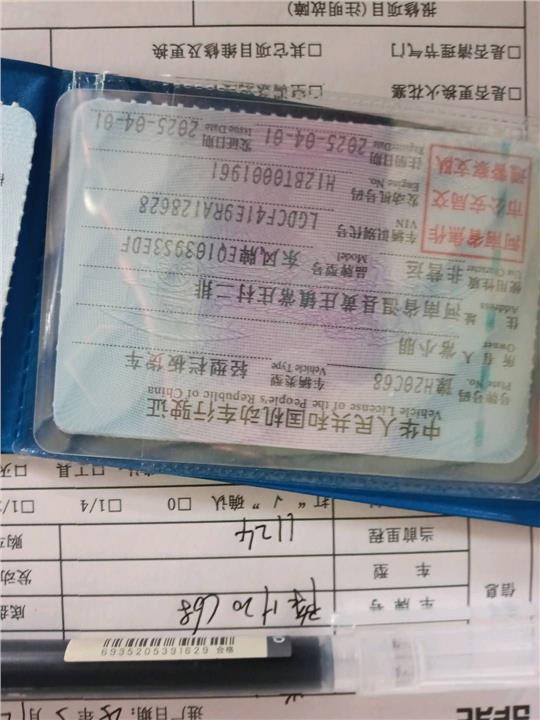 DFAC 进厂日期:
6935205391629 合格
信息
车牌号 豫H20C68 底盘
车型 发动
当前里程
打“√”确认 □0 □1/4
□工具
中华人民共和国机动车行驶证
Vehicle License of the People's Republic of China
号牌号码 豫H20C68 车辆类型 轻型栏板货车
Plate No. Vehicle Type
所有人 常小朋
Owner
住址 河南省温县黄庄镇常庄村二排
Address
使用性质 非营运 品牌型号 东风牌EQ1039S3EDF
Use Character Model
河南省焦作
市公安局交
通警察支队
车辆识别代号 LGDCF41E9RA128628
VIN
发动机号码 H12BT0001961
Engine No.
注册日期 2025-04-01 发证日期 2025-04-01
Register Date Issue Date
□是否更换火花塞
□是否清理节气门 □其它项目维修及更换
报修项目(注明故障)